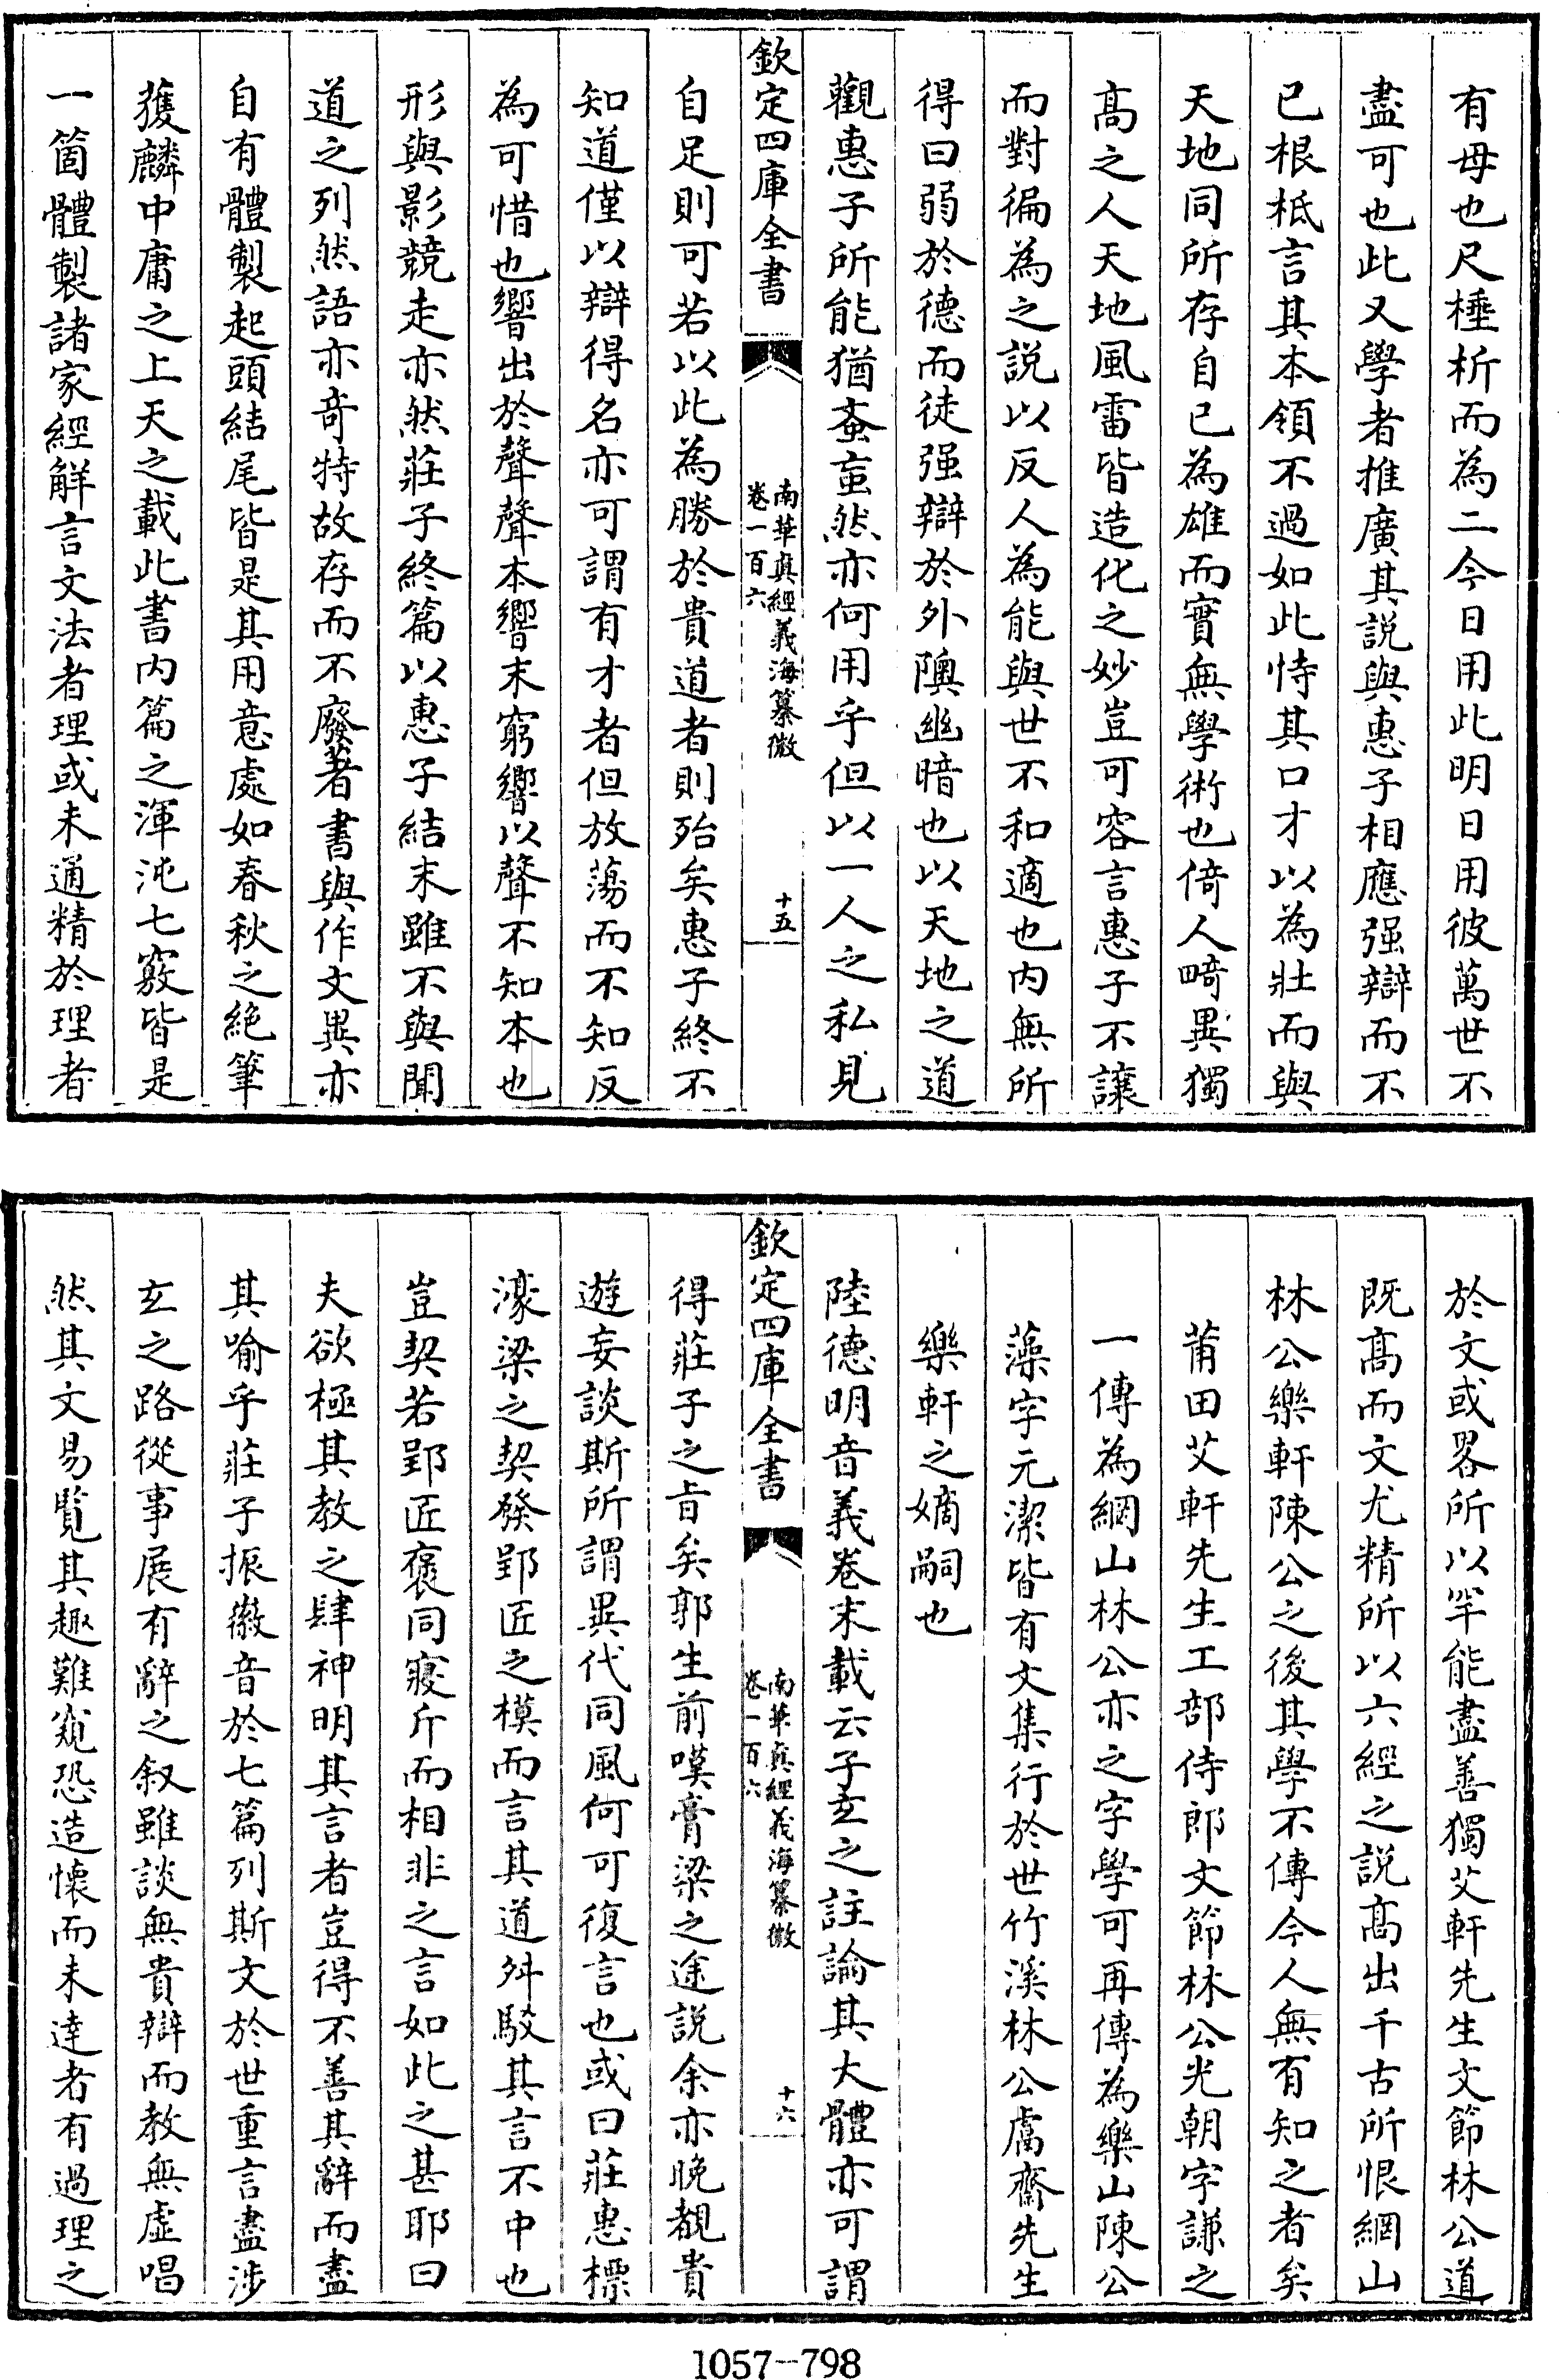 有母也尺棰析而為二今日用此明日用彼萬世不
盡可也此又學者推廣其説與惠子相應强辯而不
已根柢言其本領不過如此恃其口才以為壯而與
天地同所存自已為雄而實無學術也倚人畸異獨
髙之人天地風雷皆造化之妙豈可容言惠子不讓
而對徧為之説以反人為能與世不和適也内無所
得曰弱於德而徒强辯於外隩幽暗也以天地之道
觀惠子所能猶蚉䖟然亦何用乎但以一人之私見
欽定四庫全書
南華真經義海纂微
卷一百六
十五
自足則可若以此為勝於貴道者則殆矣惠子終不
知道僅以辯得名亦可謂有才者但放蕩而不知反
為可惜也響出於聲聲本響末窮響以聲不知本也
形與影競走亦然莊子終篇以惠子結末雖不與聞
道之列然語亦竒特故存而不廢著書與作文異亦
自有體製起頭結尾皆是其用意處如春秋之絶筆
獲麟中庸之上天之載此書内篇之渾沌七竅皆是
一箇體製諸家經解言文法者理或未通精於理者
於文或畧所以罕能盡善獨艾軒先生文節林公道
既髙而文尤精所以六經之説髙出千古所恨網山
林公樂軒陳公之後其學不傳今人無有知之者矣
莆田艾軒先生工部侍郎文節林公光朝字謙之
一傳為網山林公亦之字學可再傳為樂山陳公
藻字元潔皆有文集行於世竹溪林公鬳齋先生
樂軒之嫡嗣也
陸德明音義卷末載云子𤣥之註論其大體亦可謂
欽定四庫全書
南華真經義海纂微
卷一百六
十六
得莊子之㫖矣郭生前嘆膏梁之途説余亦晚覩貴
遊妄談斯所謂異代同風何可復言也或曰莊惠標
濠梁之契發郢匠之模而言其道舛駮其言不中也
豈契若郢匠褒同寢斤而相非之言如此之甚耶曰
夫欲極其教之肆神明其言者豈得不善其辭而盡
其喻乎莊子振徽音於七篇列斯文於世重言盡涉
𤣥之路從事展有辭之叙雖談無貴辯而教無虚唱
然其文易覧其趣難窺恐造懐而未達者有過理之
1057—798